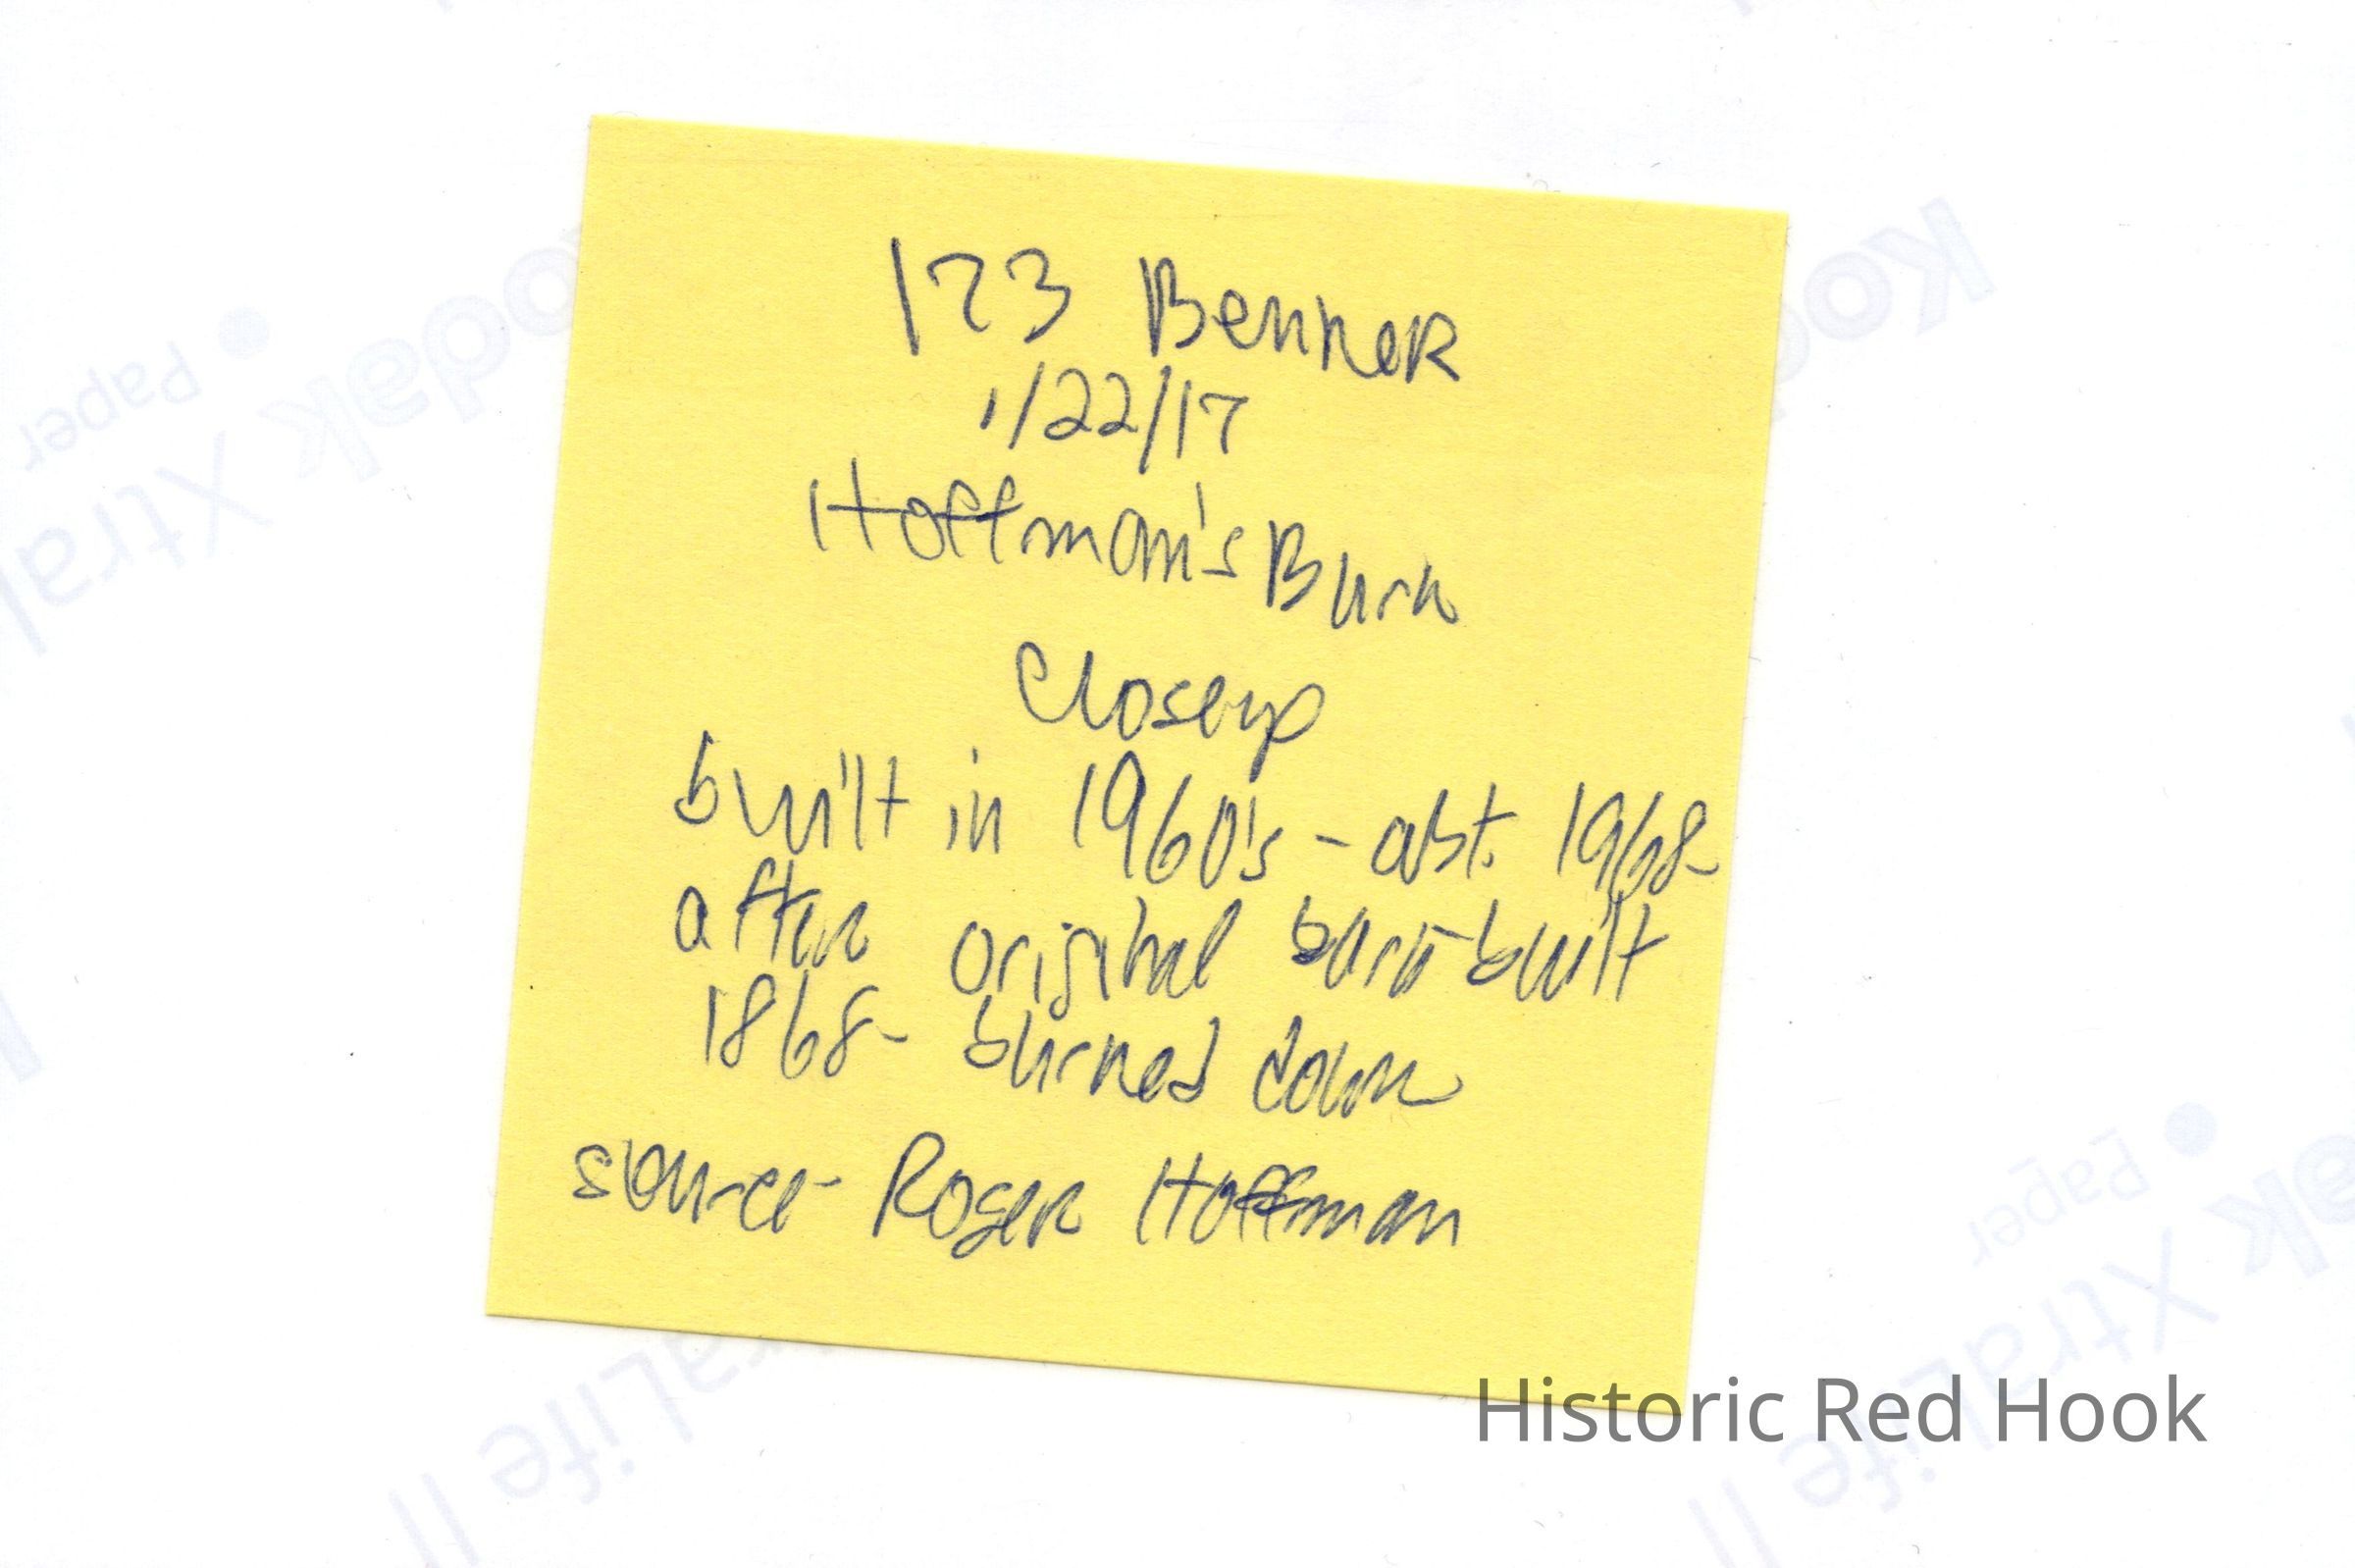 123 Benner
1/22/17
Hoffman's Barn
Closeup
built in 1960's - abt. 1968-
after original barn-built
1868- burned down
source- Roger Hoffman
Historic Red Hook
Kodak XtraLife II
Paper
Kodak XtraLife II
Paper